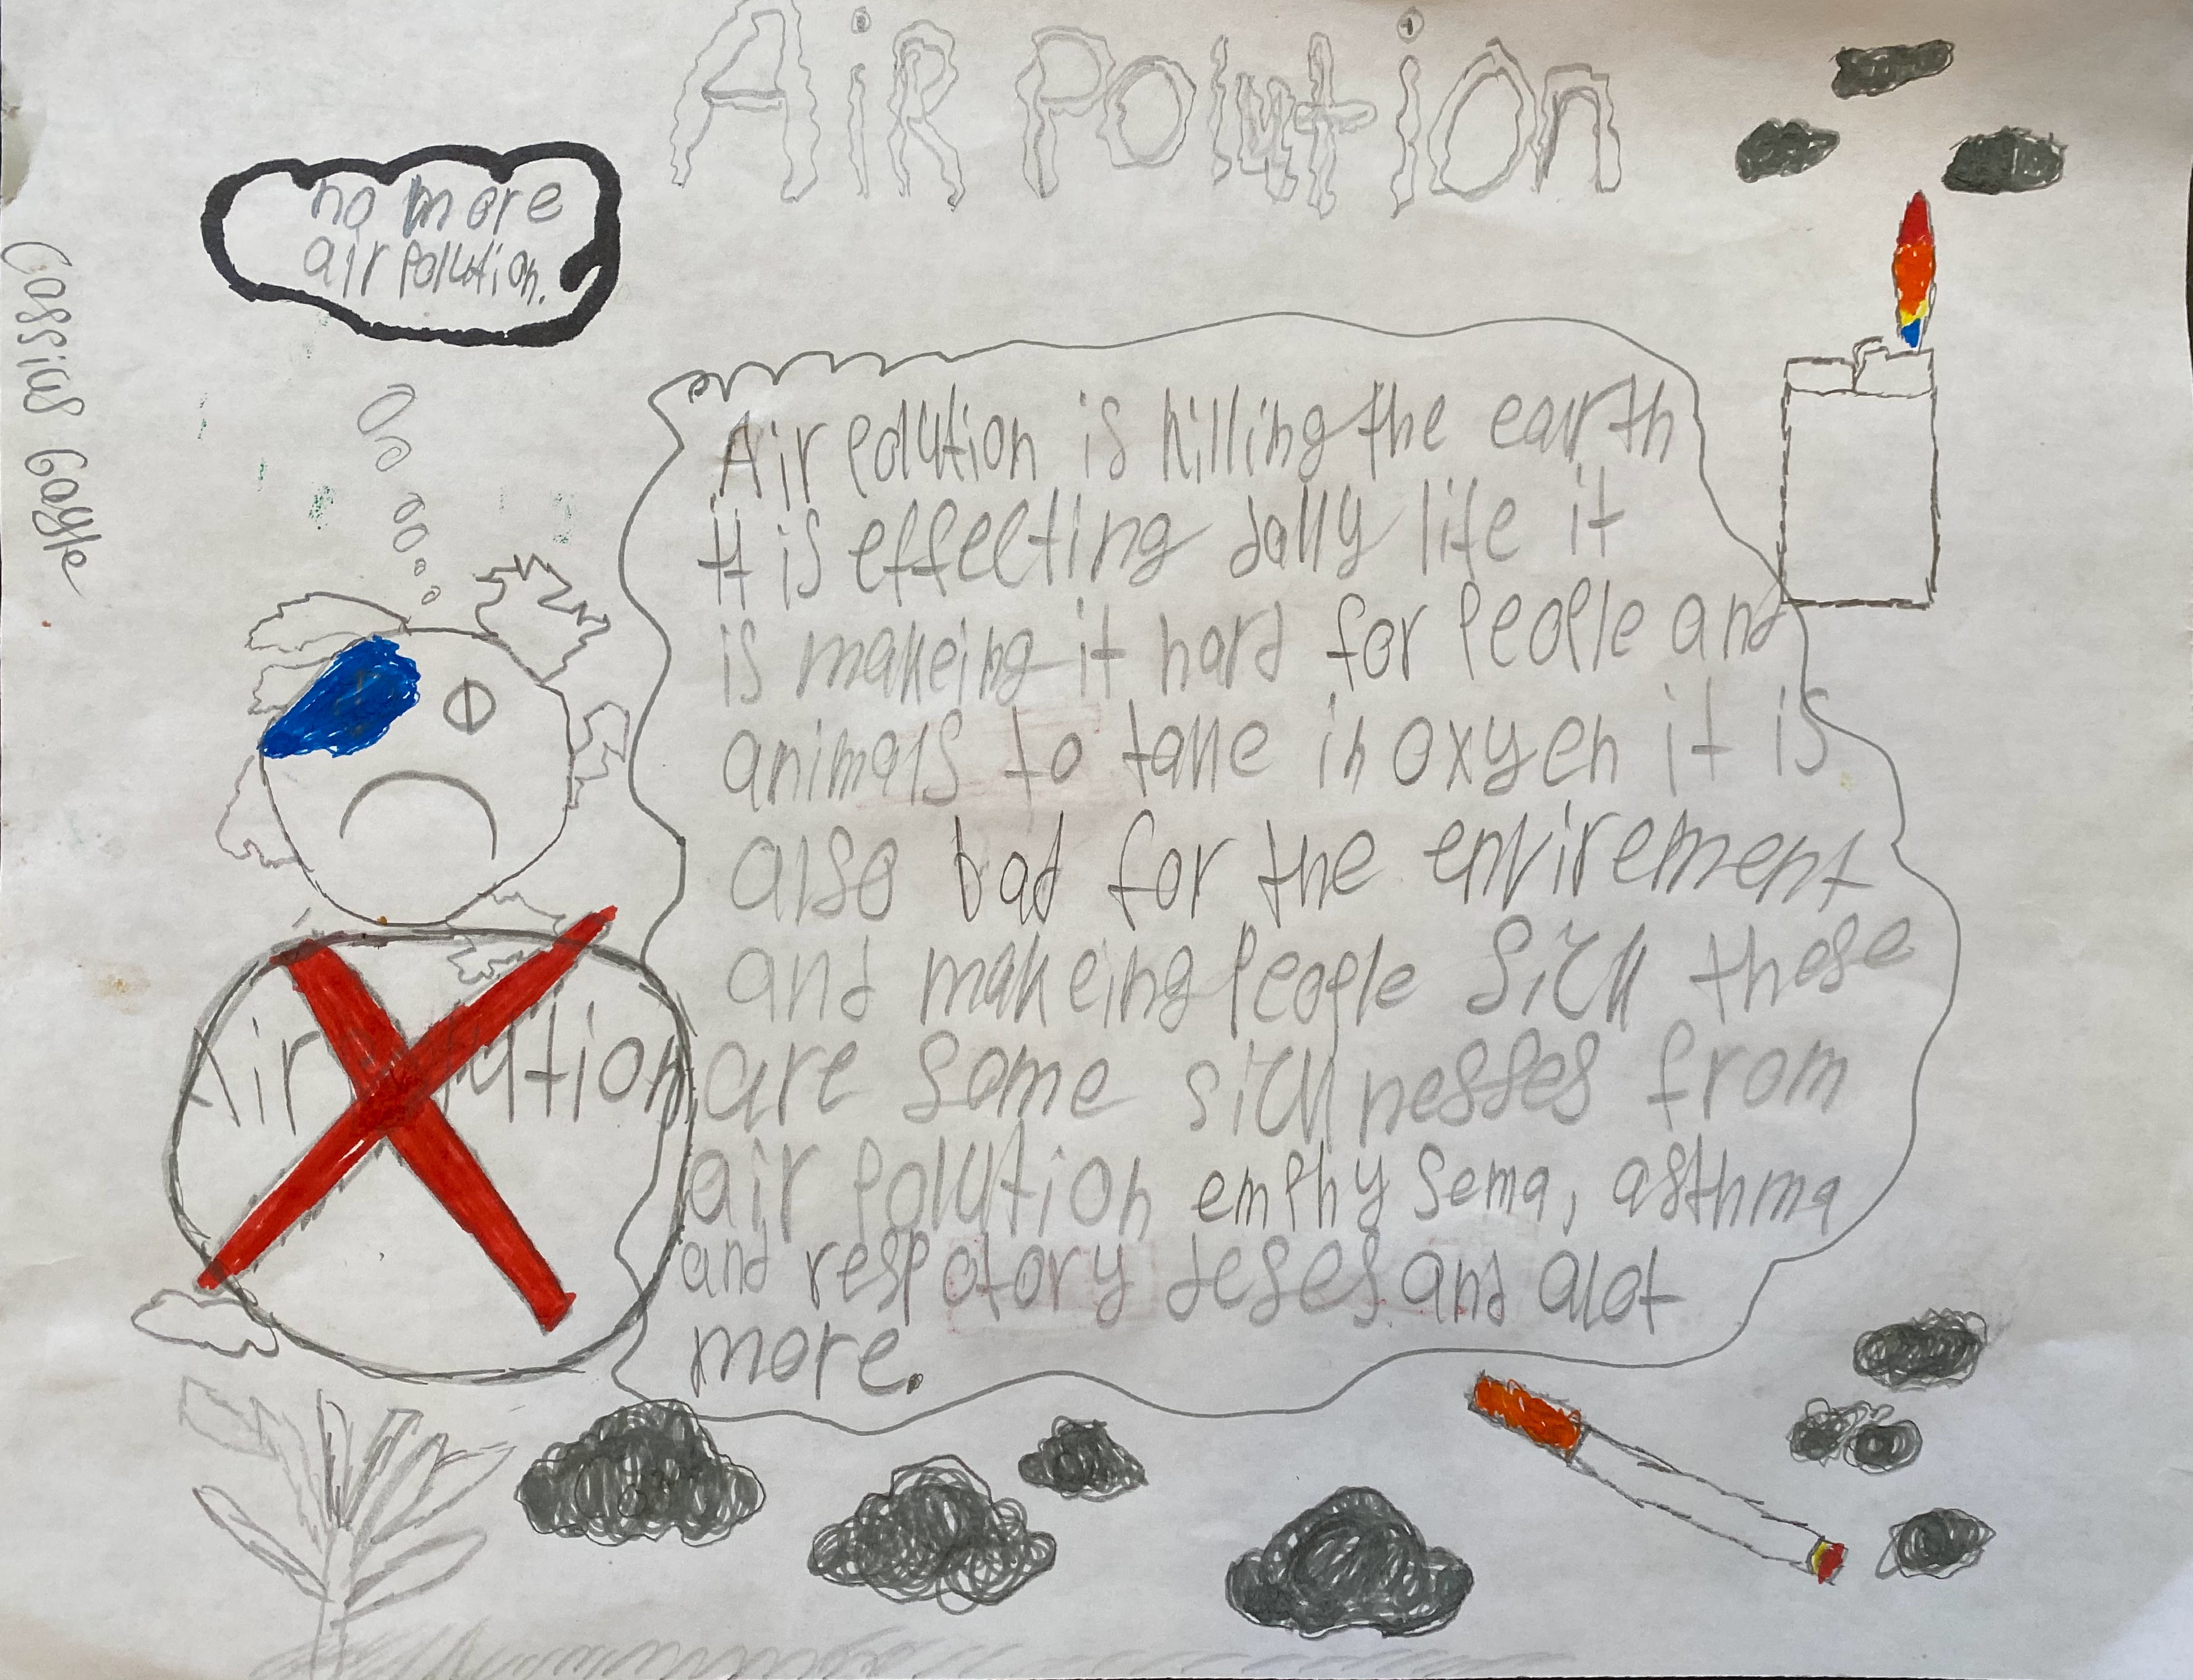 Air Polution
no more
air pollution.
Air polution is killing the earth
it is effecting dally life it
is makeing it hard for people and
animals to take in oxygen it is
also bad for the envirement
and makeing people sick these
are some sicknesses from
air polution emphysema, asthma
and respotory deses and alot
more.
Air ution
Cassius Gagle